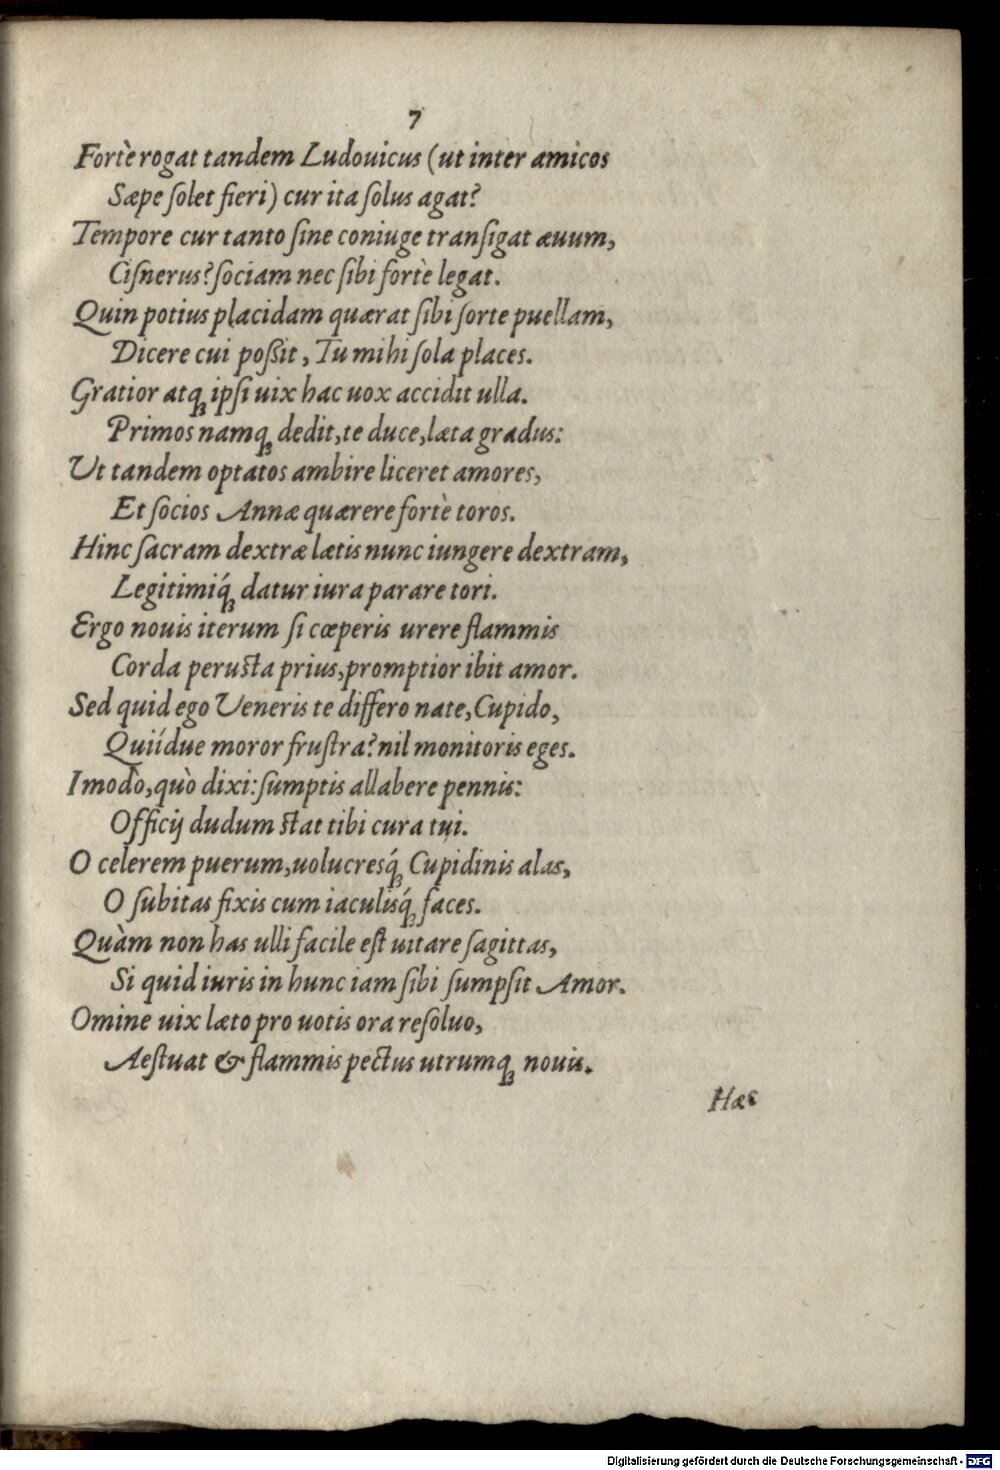 7
Fortè rogat tandem Ludouicus (ut inter amicos
Sæpe ſolet fieri) cur ita ſolus agat?
Tempore cur tanto ſine coniuge tranſigat æuum,
Ciſnerus? ſociam nec ſibi fortè legat.
Quin potius placidam quærat ſibi ſorte puellam,
Dicere cui poßit, Tu mihi ſola places.
Gratior atq; ipſi uix hac uox accidit ulla.
Primos namq; dedit, te duce, læta gradus:
Ut tandem optatos ambire liceret amores,
Et ſocios Annæ quærere fortè toros.
Hinc ſacram dextræ lætis nunc iungere dextram,
Legitimiq́; datur iura parare tori.
Ergo nouis iterum ſi cœperis urere flammis
Corda peruſta prius, promptior ibit amor.
Sed quid ego Veneris te differo nate, Cupido,
Quiídue moror fruſtra? nil monitoris eges.
I modò, quò dixi: ſumptis allabere pennis:
Officij dudum ſtat tibi cura tui.
O celerem puerum, uolucresq́; Cupidinis alas,
O ſubitas fixis cum iaculisq́; faces.
Quàm non has ulli facile eſt uitare ſagittas,
Si quid iuris in hunc iam ſibi ſumpſit Amor.
Omine uix læto pro uotis ora reſoluo,
Aeſtuat & flammis pectus utrumq; nouis.
Hæc
Digitalisierung gefördert durch die Deutsche Forschungsgemeinschaft - DFG